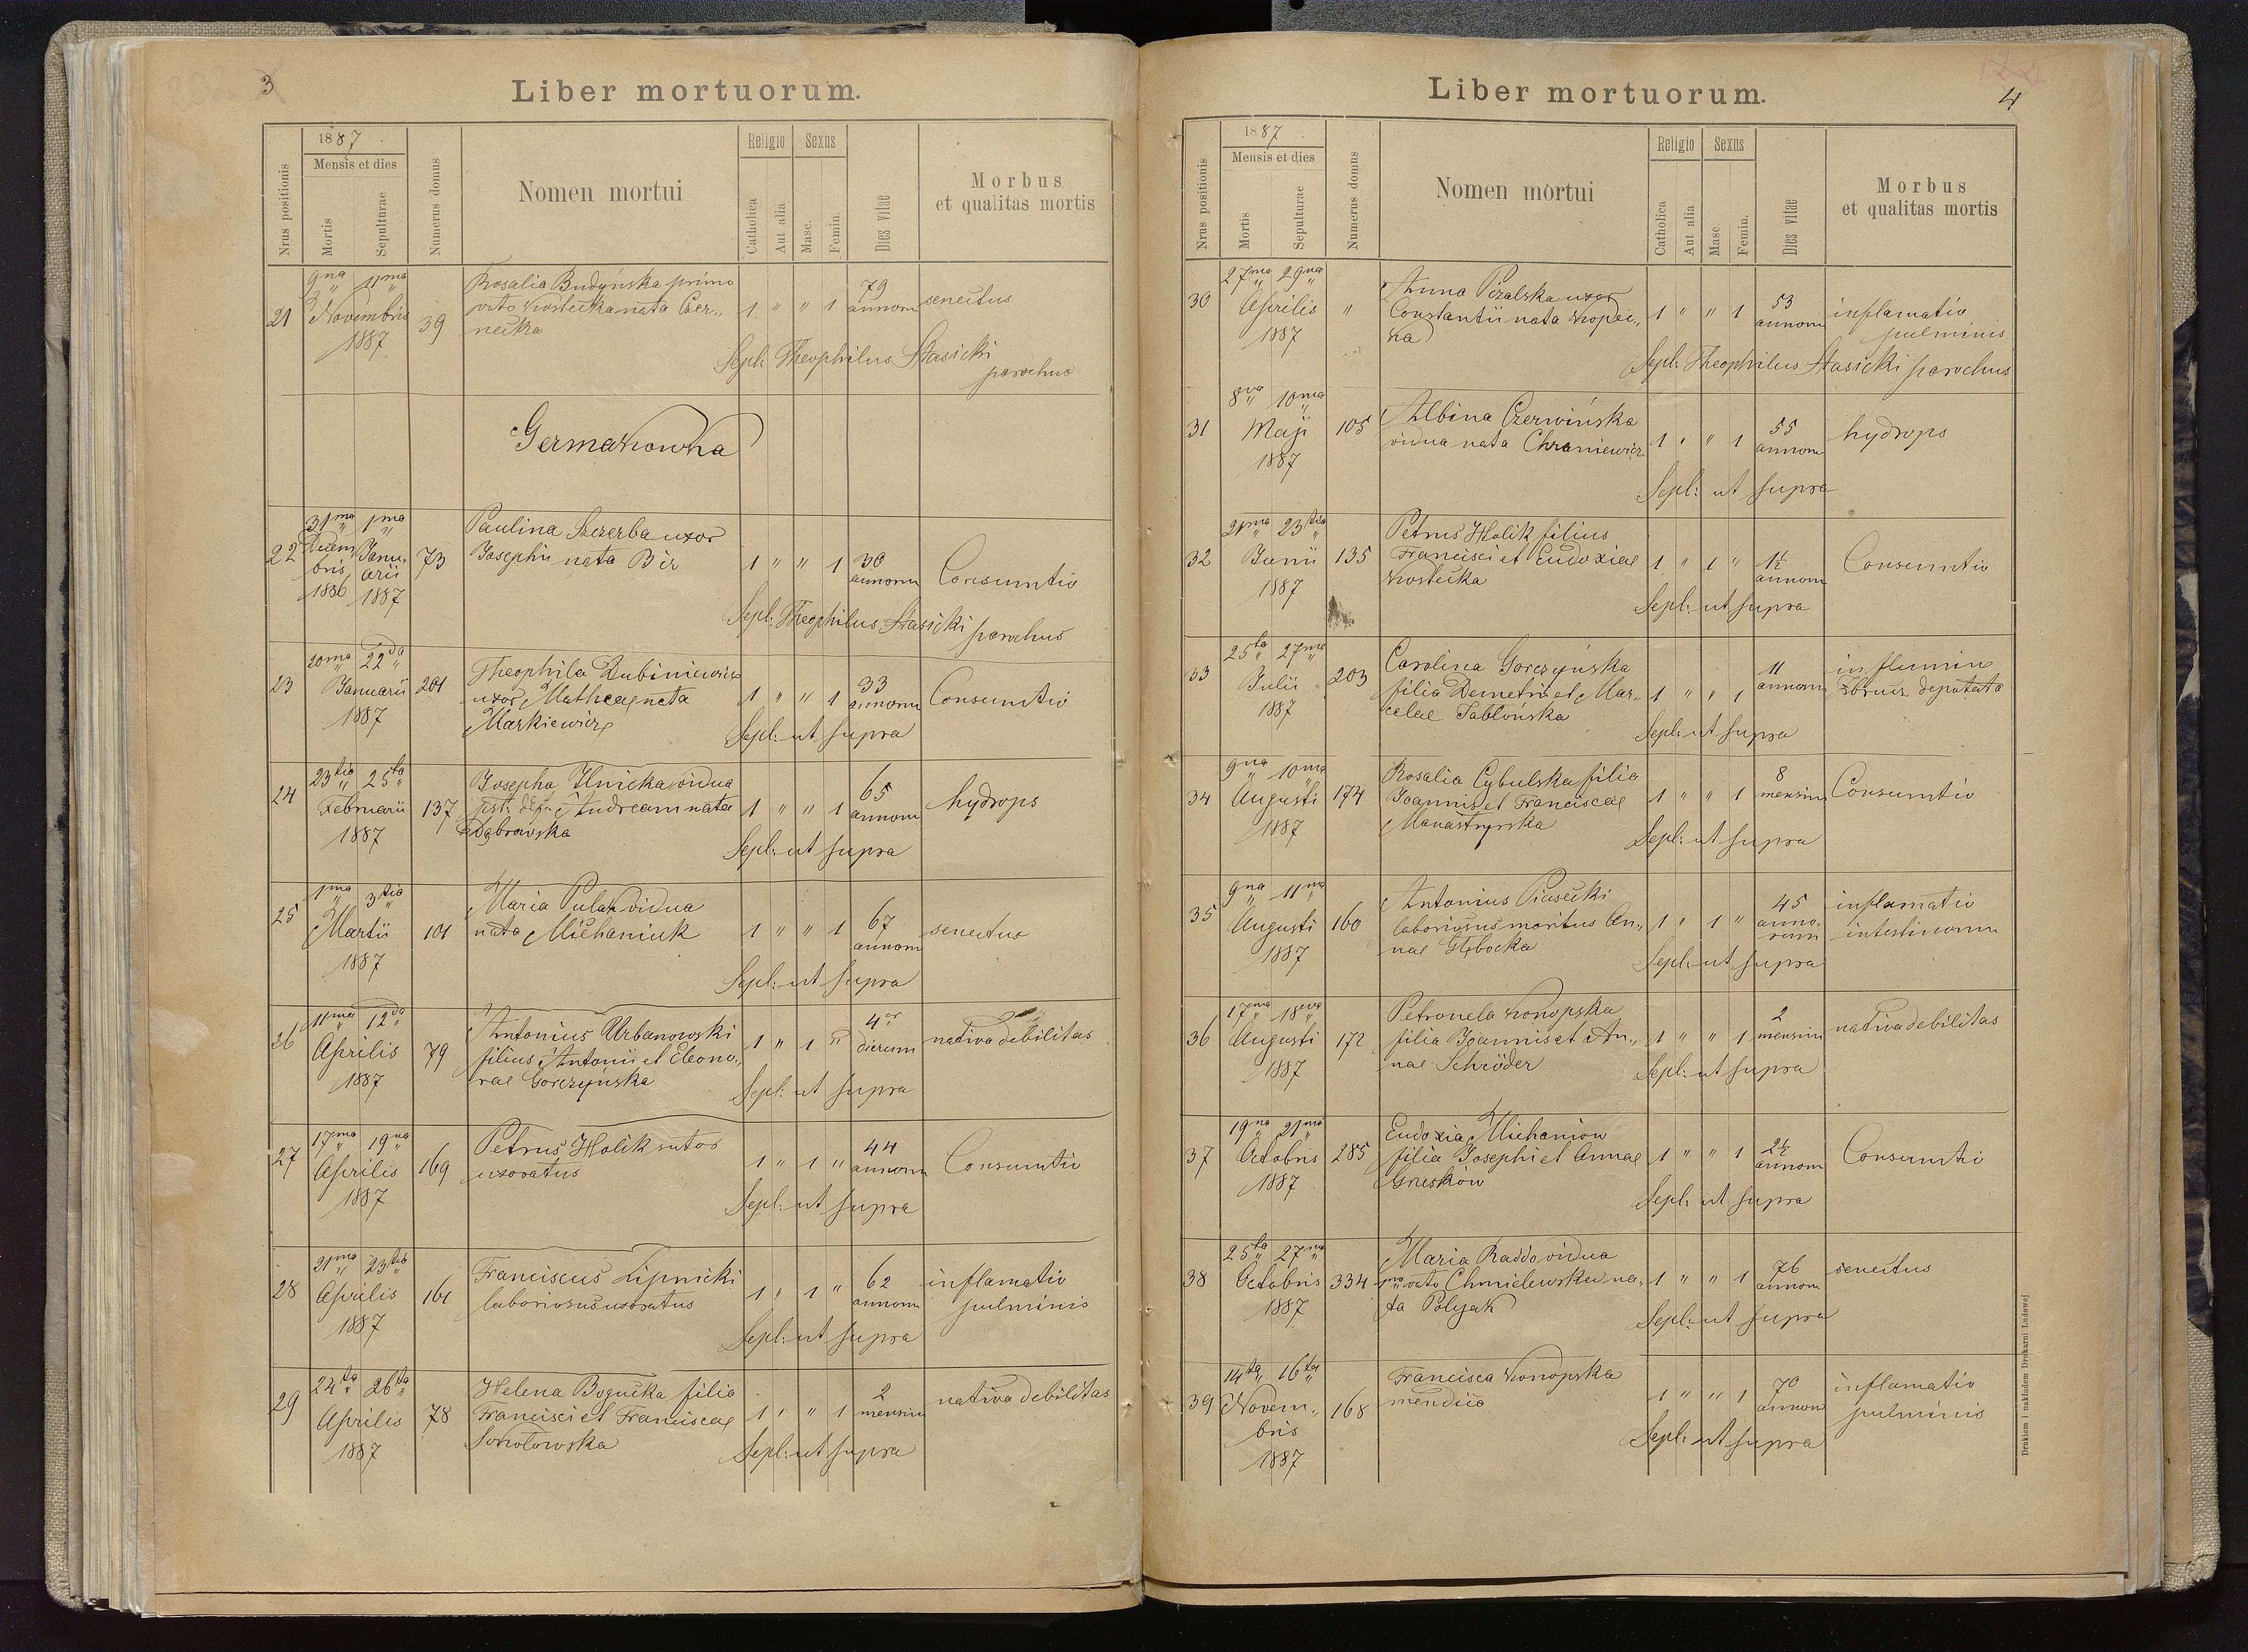 3
Liber mortuorum.
1887
Mensis et dies
Religio
Sexus
Nrus positionis
Mortis
Sepulturae
Numerus domus
Nomen mortui
Catholica
Aut alia
Masc.
Femin.
Dies vitae
Morbus
et qualitas mortis
9na 11ma
Rosalia Budyńska primo
79
21 Novembris 39 voto Kostecka nata Czer„ 1 " " 1 annorum senectus
1887 necka
Sepl: Theophilus Stasicki
parochus
Germakowka
31ma 1ma
Paulina Szczerba uxor
22 Decem Janu„ 73 Josephi nata Bir 1 " " 1 30
bris arii annorum Consumtio
1886 1887
Sepl: Theophilus Stasicki parochus
20ma 22da
Theophila Dubiniewicz
23 Januarii 201 uxor Mathea nata 1 " " 1 33 annorum Consumtio
1887 Markiewicz
Sepl: ut supra
23tia 25ta
Josepha Ilnicka vidua
24 Februarii 137 post: def: Andream nata 1 " " 1 65 annorum hydrops
1887 Dąbrowska
Sepl: ut supra
1ma 3tia
Maria Pulak vidua
25 Martii 101 nata Michaniuk 1 " " 1 67 annorum senectus
1887
Sepl: ut supra
11ma 12da
Antonius Urbanowski
26 Aprilis 79 filius Antonii et Eleono„ 1 " 1 " 4or dierum nativa debilitas
1887 rae Gorczyńska
Sepl: ut supra
17ma 19na
Petrus Holik sutor
27 Aprilis 169 uxoratus 1 " 1 " 44 annorum Consumtio
1887
Sepl: ut supra
21ma 23tia
Franciscus Lipnicki
28 Aprilis 161 laboriosus uxoratus 1 " 1 " 62 annorum inflamatio
1887 pulminis
Sepl: ut supra
24ta 26ta
Helena Bogucka filia
29 Aprilis 78 Francisci et Franciscae 1 " " 1 2 mensium nativa debilitas
1887 Sokołowska
Sepl: ut supra
4
Liber mortuorum.
1887
Mensis et dies
Religio
Sexus
Nrus positionis
Mortis
Sepulturae
Numerus domus
Nomen mortui
Catholica
Aut alia
Masc
Femin.
Dies vitae
Morbus
et qualitas mortis
27ma 29na
Anna uxor
30 Aprilis " Constantii nata 1 " " 1 53 annorum inflamatio
1887 pulminis
Sepl: Theophilus Stasicki parochus
8va 10ma
Albina Czerwińska
31 Maji 105 vidua nata Chraniewicz 1 " " 1 55 annorum hydrops
1887
Sepl: ut supra
21ma 23tia
Petrus Holik filius
32 Junii 135 Francisci et Eudoxiae 1 " 1 " 1½ annorum Consumtio
1887 Kostecka
Sepl: ut supra
25ta 27ma
Carolina Gorczyńska
33 Julii 203 filia Demetrii et Mar„ 1 " " 1 11 annorum in flumine
1887 celae Jabłońska Zbrucz
Sepl: ut supra
9na 10ma
Rosalia Cybulska filia
34 Augusti 174 Joannis et Franciscae 1 " " 1 8 mensium Consumtio
1887 Manastyrska
Sepl: ut supra
9na 11ma
Antonius Piasecki
35 Augusti 160 laboriosus maritus An„ 1 " 1 " 45 anno„ rum inflamatio
1887 nae Głębocka intestinorum
Sepl: ut supra
17ma 18va
Petronela Konopska
36 Augusti 172 filia Joannis et An„ 1 " " 1 2 mensium nativa debilitas
1887 nae Schröder
Sepl: ut supra
19na 21ma
Eudoxia Michaniow
37 Octobris 285 filia Josephi et Annae 1 " " 1 2½ annorum Consumtio
1887 Greskow
Sepl: ut supra
25ta 27ma
Maria Radda vidua
38 Octobris 334 1mo voto Chmielewska na„ 1 " " 1 76 annorum senectus
1887 ta Polyak
Sepl: ut supra
14ta 16ta
Francisca Konopska
39 Novem„ 168 mendica 1 " " 1 70 annorum inflamatio
bris pulminis
1887
Sepl: ut supra
Drukiem i nakładem Drukarni Ludowej